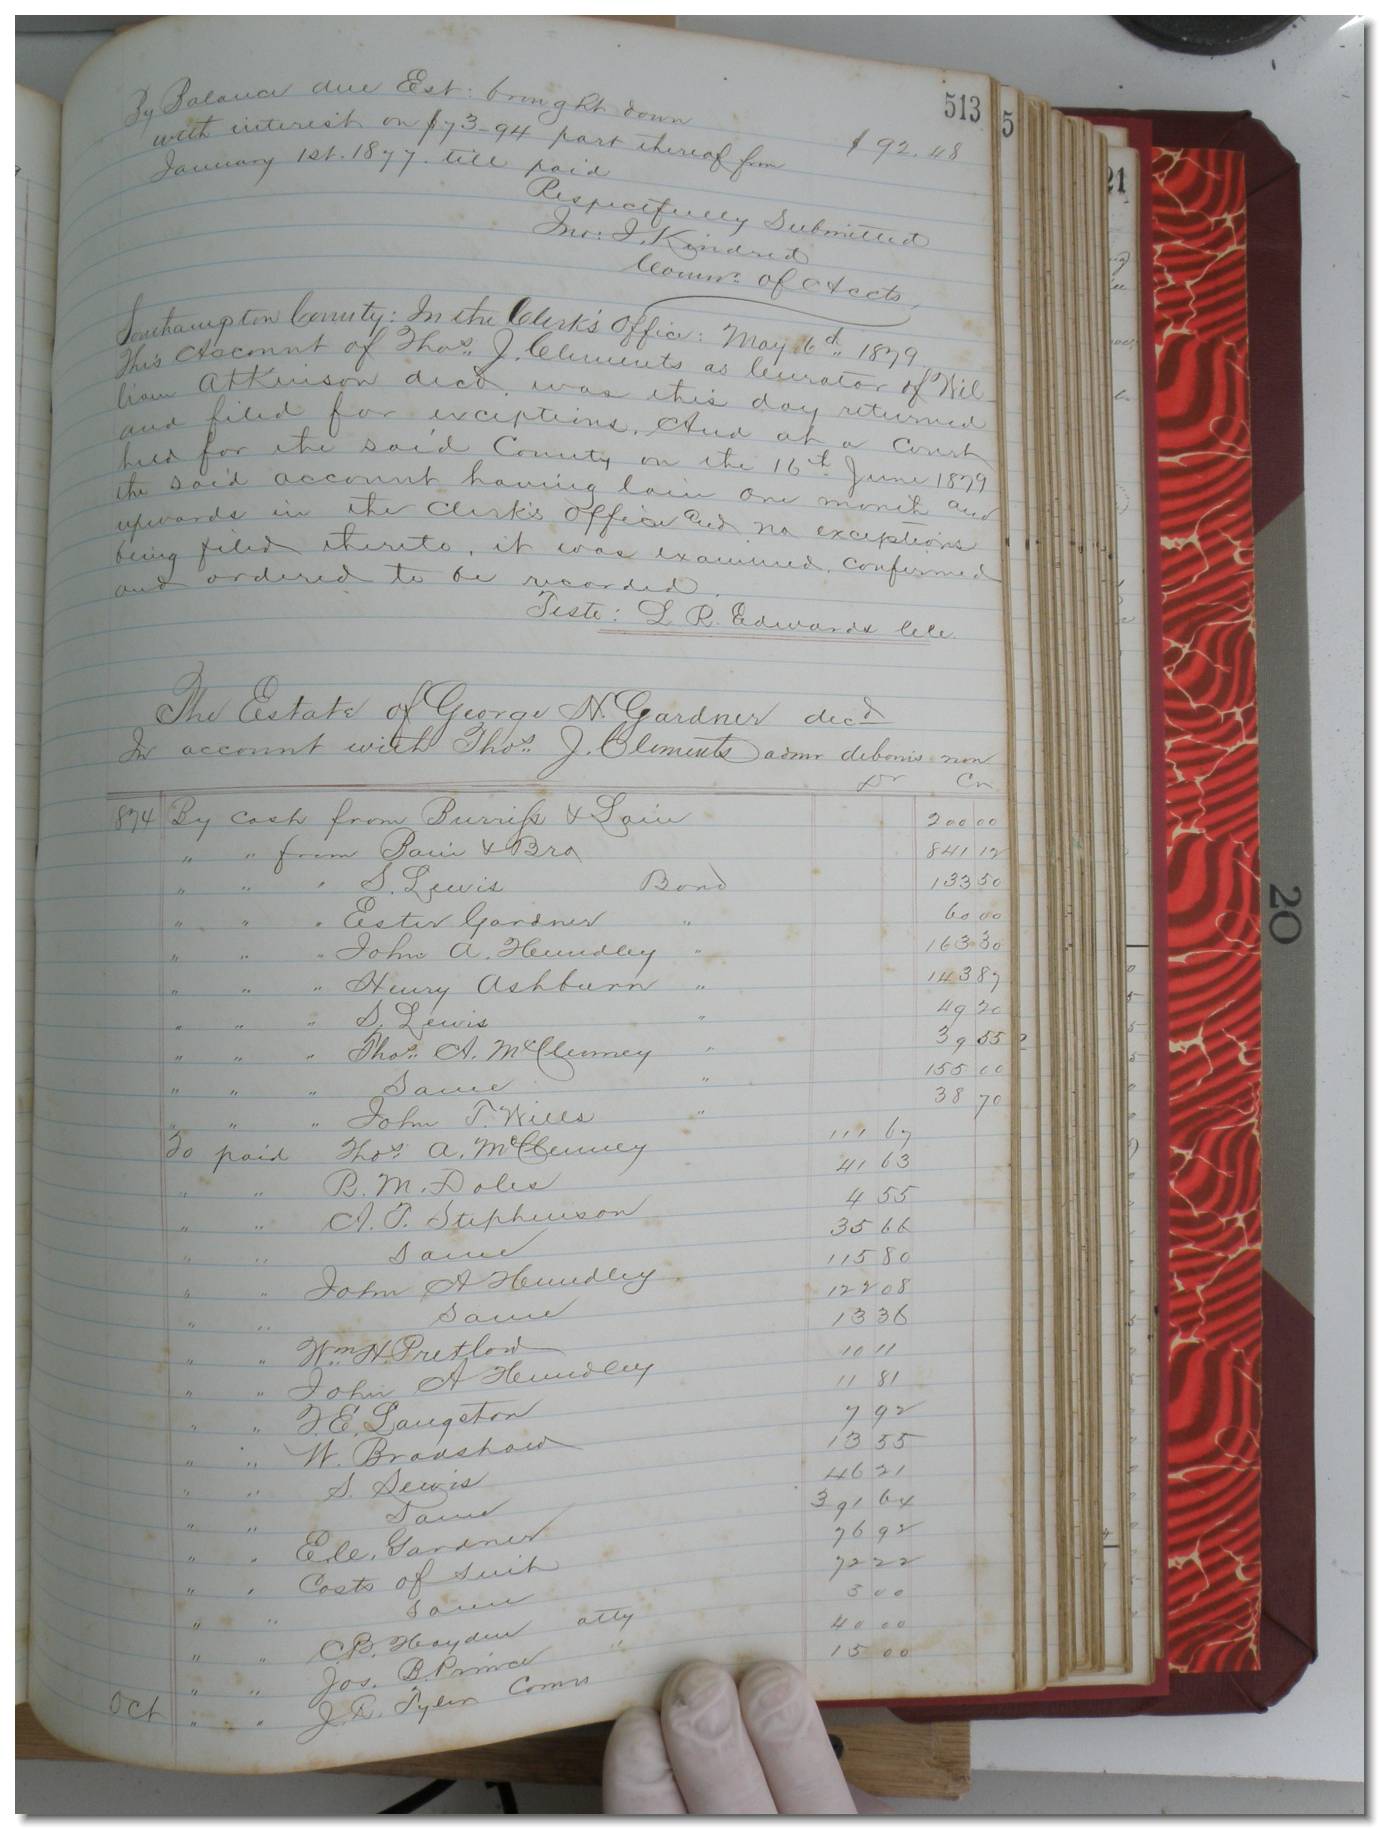 513
By Balance due Est: brought down
with interest on $73-94 part thereof from $92.48
January 1st. 1877. till paid
Respectfully Submitted
Jno: J. Kindred
Commr. of Accts.
Southampton County: In the Clerk's Office: May 6d.. 1879
This Account of Thos. J. Clements as Curator of Wil
liam Atkinson decd. was this day returned
and filed for exceptions. And at a Court
held for the said County on the 16th June 1879
the said account having lain one month and
upwards in the Clerk's Office and no exceptions
being filed thereto, it was examined, confirmed
and ordered to be recorded.
Teste: L. R. Edwards Clk.
The Estate of George N. Gardner decd
In account with Thos. J. Clements admr debonis non
Dr Cr
874 By cash from Burriss & Lain 200 00
" " from Pain & Bro 841 12
" " " S. Lewis Bond 133 50
" " " Ester Gardner " 60 00
" " " John A. Hundley " 163 30
" " " Henry Ashburn " 143 87
" " " S. Lewis " 49 20
" " " Thos. A. McClenney " 39 55
" " " Same " 155 00
" " " John T. Wills " 38 70
To paid Thos. A. McClenney 111 67
" " R. M. Doles 41 63
" " A. T. Stephenson 4 55
" " Same 35 66
" " John A Hundley 115 80
" " Same 122 08
" " Wm. H. Pretlow 13 36
" " John A Hundley 10 11
" " F. E. Langston 11 81
" " W. Bradshaw 7 92
" " S. Lewis 13 55
" " Same 46 21
" " E.C. Gardner 391 64
" " Costs of Suit 76 92
" " Same 72 22
" " C.B. Hayden atty 5 00
" " Jos. B. Prince " 40 00
Oct " " J. R. Tyler Comr 15 00
5
21
20